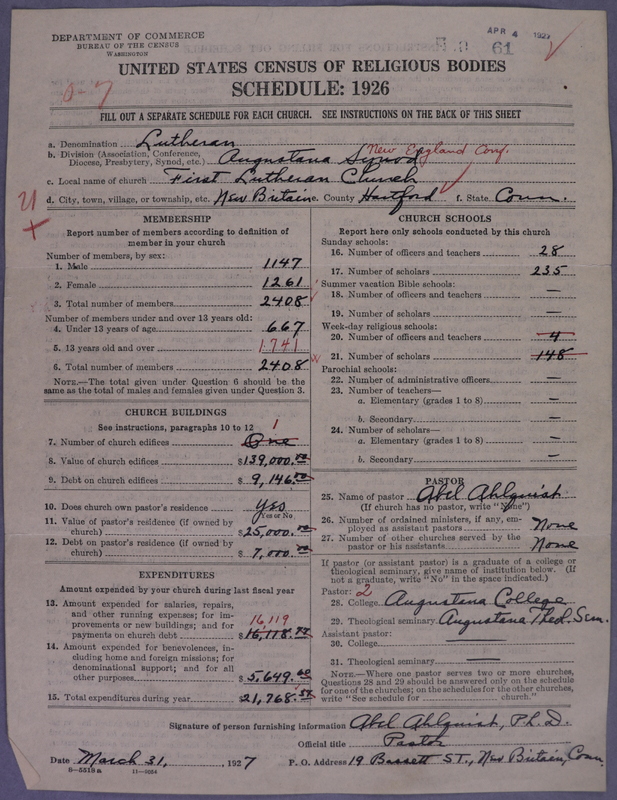 DEPARTMENT OF COMMERCE
BUREAU OF THE CENSUS
WASHINGTON
APR 4 1927
61
UNITED STATES CENSUS OF RELIGIOUS BODIES
SCHEDULE: 1926
FILL OUT A SEPARATE SCHEDULE FOR EACH CHURCH. SEE INSTRUCTIONS ON THE BACK OF THIS SHEET
a. Denomination Lutheran
b. Division (Association, Conference, Diocese, Presbytery, Synod, etc.) Augustana Synod New England Conf.
c. Local name of church First Lutheran Church
d. City, town, village, or township, etc. New Britain e. County Hartford f. State Conn.
MEMBERSHIP
Report number of members according to definition of
member in your church
Number of members, by sex:
1. Male 1147
2. Female 1261
3. Total number of members 2408
Number of members under and over 13 years old:
4. Under 13 years of age 667
5. 13 years old and over 1741
6. Total number of members 2408
NOTE.—The total given under Question 6 should be the
same as the total of males and females given under Question 3.
CHURCH BUILDINGS
See instructions, paragraphs 10 to 12
7. Number of church edifices One 1
8. Value of church edifices $139,000.00
9. Debt on church edifices $9,146.00
10. Does church own pastor's residence yes
Yes or No
11. Value of pastor's residence (if owned by
church) $25,000.00
12. Debt on pastor's residence (if owned by
church) $7,000.00
EXPENDITURES
Amount expended by your church during last fiscal year
13. Amount expended for salaries, repairs,
and other running expenses; for im-
provements or new buildings; and for 16,119
payments on church debt $16,118.
14. Amount expended for benevolences, in-
cluding home and foreign missions; for
denominational support; and for all
other purposes $5,649.
15. Total expenditures during year $21,768.
CHURCH SCHOOLS
Report here only schools conducted by this church
Sunday schools:
16. Number of officers and teachers 28
17. Number of scholars 235
Summer vacation Bible schools:
18. Number of officers and teachers —
19. Number of scholars —
Week-day religious schools:
20. Number of officers and teachers 4
21. Number of scholars 148
Parochial schools:
22. Number of administrative officers —
23. Number of teachers—
a. Elementary (grades 1 to 8) —
b. Secondary —
24. Number of scholars—
a. Elementary (grades 1 to 8) —
b. Secondary —
PASTOR
25. Name of pastor Abel Ahlquist
(If church has no pastor, write "None")
26. Number of ordained ministers, if any, em-
ployed as assistant pastors None
27. Number of other churches served by the
pastor or his assistants None
If pastor (or assistant pastor) is a graduate of a college or
theological seminary, give name of institution below. (If
not a graduate, write "No" in the space indicated.)
Pastor: 2
28. College Augustana College
29. Theological seminary Augustana Theol. Sem.
Assistant pastor:
30. College —
31. Theological seminary —
NOTE.—Where one pastor serves two or more churches,
Questions 28 and 29 should be answered only on the schedule
for one of the churches; on the schedules for the other churches,
write "See schedule for ________ church."
Signature of person furnishing information Abel Ahlquist, Ph.D.
Official title Pastor
Date March 31, 1927 P. O. Address 19 Bassett St., New Britain, Conn.
8—5518a 11—9024